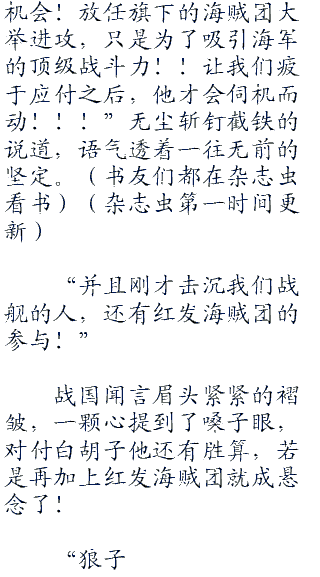 机会！放任旗下的海贼团大
举进攻，只是为了吸引海军
的顶级战斗力！！让我们疲
于应付之后，他才会伺机而
动！！！”无尘斩钉截铁的
说道，语气透着一往无前的
坚定。（书友们都在杂志虫
看书）（杂志虫第一时间更
新）
“并且刚才击沉我们战
舰的人，还有红发海贼团的
参与！”
战国闻言眉头紧紧的褶
皱，一颗心提到了嗓子眼，
对付白胡子他还有胜算，若
是再加上红发海贼团就成悬
念了！
“狼子